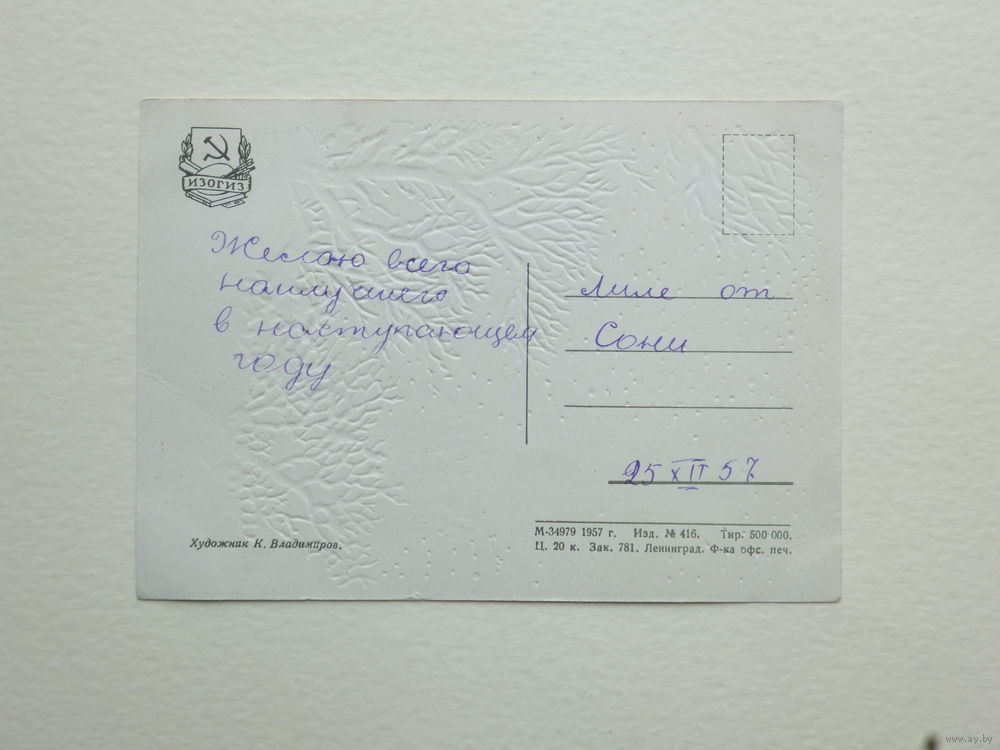 ИЗОГИЗ
Желаю всего
наилучшего
в наступающем
году
Лиле от
Сони
25 XII 57
Художник К. Владимиров.
М-34979 1957 г. Изд. № 416. Тир. 500 000.
Ц. 20 к. Зак. 781. Ленинград. Ф-ка офс. печ.
www.ay.by